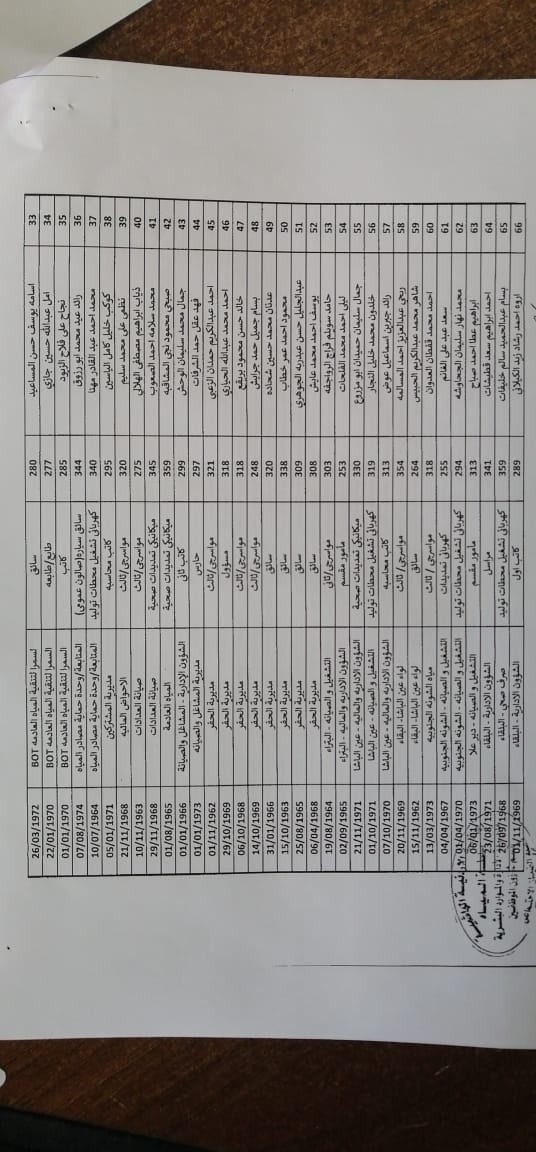 33 اسامه يوسف حسن المساعيد 280 سائق السمرا لتنقية المياه العادمه BOT 26/03/1972
34 امل عبدالله حسين جازي 277 طابع/طابعه السمرا لتنقية المياه العادمه BOT 22/01/1970
35 نجاح علي فلاح الزيود 285 كاتب السمرا لتنقية المياه العادمه BOT 01/01/1970
36 رائد عبد محمد ابو رزوق 344 سائق سياره(صالون عمومي) المتابعة/وحدة حماية مصادر المياه 07/08/1974
37 محمد احمد عبد القادر مهنا 340 كهربائي تشغيل محطات توليد المتابعة/وحدة حماية مصادر المياه 10/07/1964
38 كوكب خليل كامل الياسين 295 كاتب محاسبه مديرية المشتركين 05/01/1971
39 نظمي علي محمد سليم 320 مواسرجي/ثالث الاحواض المائيه 21/11/1968
40 ذياب ابراهيم مصطفى الهلالي 275 مواسرجي/ثالث صيانة العدادات 10/11/1963
41 محمد سلامه احمد الصعوب 345 ميكانيكي تمديدات صحية صيانة العدادات 29/11/1968
42 صبحي محمود المشاقبه 359 ميكانيكي تمديدات صحية المياه العادمة 01/08/1965
43 جمال محمد سليمان الوحش 299 كاتب ثاني الشؤون الإدارية - المشاغل والصيانة 01/01/1966
44 فهد عقل حمد الشرفات 297 حارس مديرية المشاغل والصيانه 01/01/1973
45 احمد عبدالكريم حمدان الزعبي 321 مواسرجي/ثالث مديرية الحفر 01/11/1962
46 احمد محمد عبدالله الحياري 318 مسؤول مديرية الحفر 29/10/1969
47 خالد حسن محمود بريقع 318 مواسرجي/ثالث مديرية الحفر 06/10/1968
48 بسام جميل حمد جرايش 248 مواسرجي/ثالث مديرية الحفر 14/10/1969
49 عدنان محمد حسين شحاده 320 سائق مديرية الحفر 31/01/1966
50 محمود احمد عمر خطاب 338 سائق مديرية الحفر 15/10/1963
51 عبدالجليل حسن عبدربه الجوهري 309 سائق مديرية الحفر 25/08/1965
52 يوسف احمد محمد عايش 308 سائق مديرية الحفر 06/04/1968
53 حامد سويلم فراج الرواجفه 303 مواسرجي/ثاني التشغيل و الصيانه - البتراء 19/08/1964
54 ليلى احمد محمد الفلحات 253 مامور مقسم الشؤون الاداريه والماليه - البتراء 02/09/1965
55 جمال سليمان حميدان ابو مزروع 330 ميكانيكي تمديدات صحية الشؤون الاداريه والماليه - عين الباشا 21/11/1971
56 خلدون محمد خليل النجار 319 كهربائي تشغيل محطات توليد التشغيل و الصيانه - عين الباشا 01/10/1971
57 رائد جبرين اسماعيل عوض 313 كاتب محاسبه الشؤون الاداريه والماليه - عين الباشا 07/10/1970
58 ربحي عبدالعزيز احمد المسالمه 354 مواسرجي/ ثالث لواء عين الباشا- البلقاء 20/11/1969
59 شاهر محمد عبدالكريم الحبيس 264 سائق لواء عين الباشا- البلقاء 15/11/1962
60 احمد محمد قفطان العدوان 318 مواسرجي / ثالث مياه الشونه الجنوبيه 13/03/1973
61 سعد عبد علي الغانم 255 كهربائي تمديدات التشغيل و الصيانه - الشونه الجنوبيه 04/04/1967
62 محمد نهار سليمان الجحاوشه 294 كهربائي تشغيل محطات توليد التشغيل و الصيانه - الشونه الجنوبيه 01/04/1970
63 ابراهيم عطا احمد صباح 313 مامور مقسم التشغيل و الصيانه - دير علا 06/01/1973
64 احمد ابراهيم سعد قطيشات 341 مراسل الشؤون الادارية - البلقاء 23/08/1971
65 بسام عبدالحميد سالم خليفات 359 كهربائي تشغيل محطات توليد صرف صحي - البلقاء 26/09/1968
66 اروه احمد رشاد زيد الكيلاني 289 كاتب اول الشؤون الادارية - البلقاء 01/11/1969